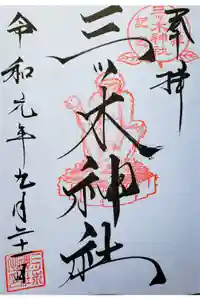 奉拝
三ツ木神社
三ツ木神社
令和元年九月二十一日